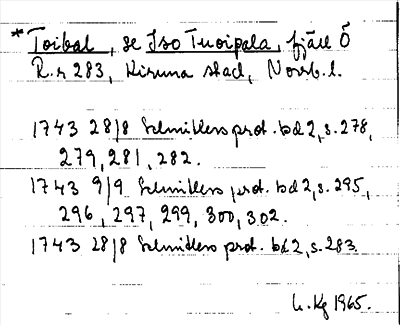 * Toibal, se Iso Tuoipala, fjäll Ö
R.r 283, Kiruna stad, Norrb. l.
1743 28/8 Schnitlers prot. bd 2, s. 278,
279, 281, 282.
1743 9/9 Schnitlers prot. bd 2, s. 295,
296, 297, 299, 300, 302.
1743 28/8 Schnitlers prot. bd 2, s. 283.
Kg 1965.